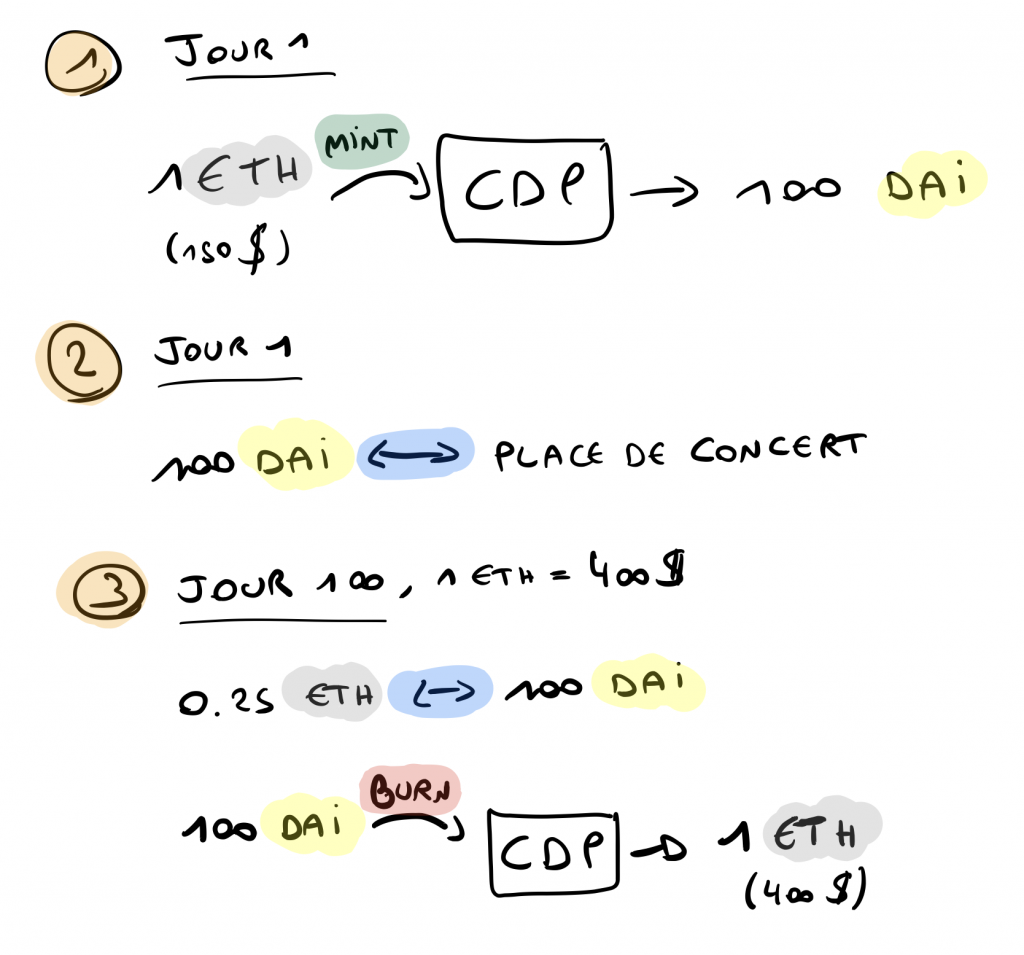 1 JOUR 1
MINT
1 ETH CDP 100 DAi
(150 $)
2 JOUR 1
100 DAi PLACE DE CONCERT
3 JOUR 100, 1 ETH = 400 $
0.25 ETH 100 DAi
BURN
100 DAi CDP 1 ETH
(400 $)